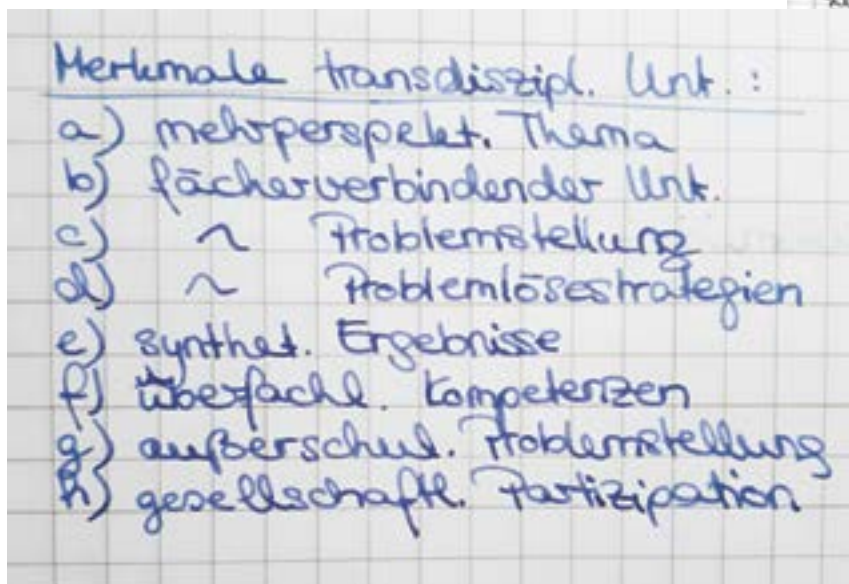 Merkmale transdiszipl. Unt.:
a) mehrperspekt. Thema
b) fächerverbindender Unt.
c) ~ Problemstellung
d) ~ Problemlösestrategien
e) synthet. Ergebnisse
f) überfachl. Kompetenzen
g) außerschul. Problemstellung
h) gesellschaftl. Partizipation